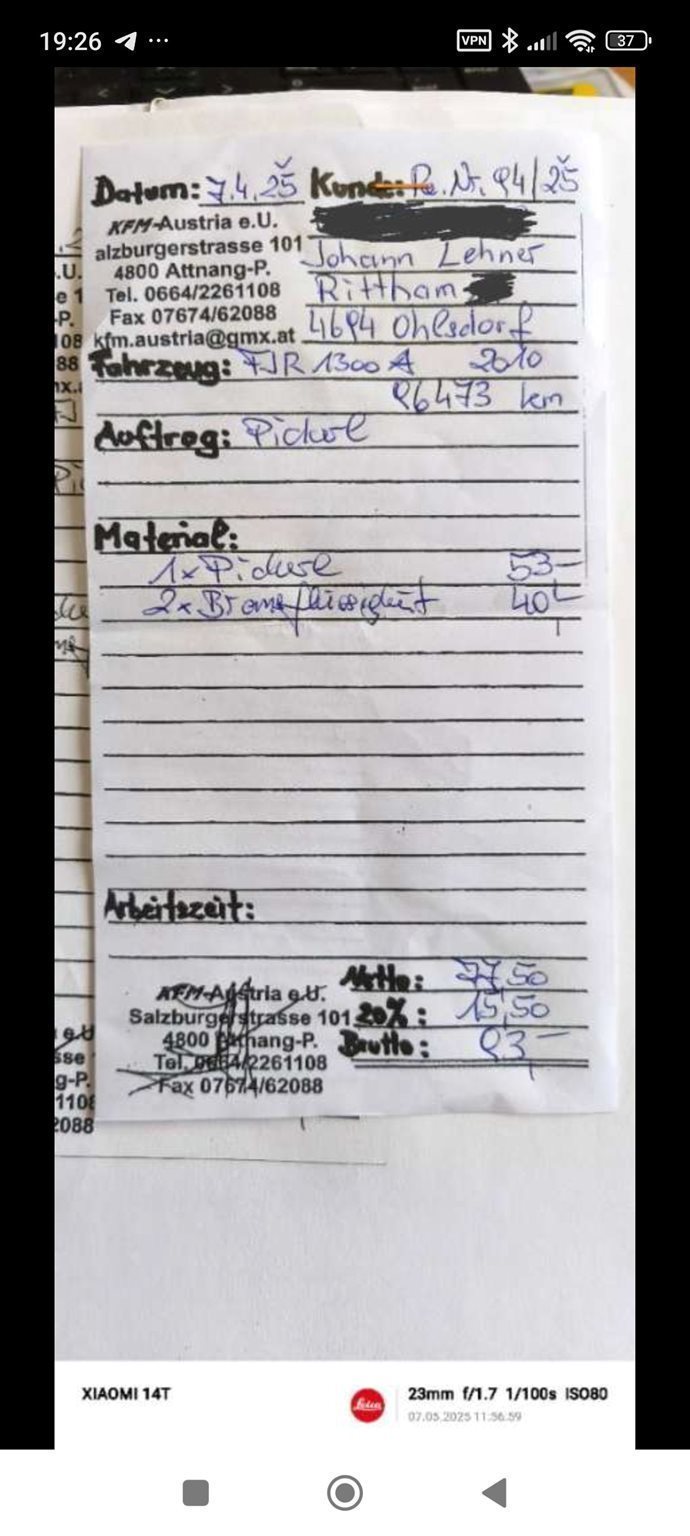 19:26 ... VPN 37
Datum: 7.4.25 Kunde: Re. Nr. 94/25
KFM-Austria e.U.
alzburgerstrasse 101
4800 Attnang-P.
Tel. 0664/2261108
Fax 07674/62088
kfm.austria@gmx.at
Johann Lehner
Rittham
4694 Ohlsdorf
Fahrzeug: FJR 1300 A 2010
96473 km
Auftrag: Pickerl
Material:
1x Pickerl 53-
2x Bremsflüssigkeit 40-
Arbeitszeit:
KFM-Austria e.U.
Salzburgerstrasse 101
4800 Attnang-P.
Tel. 0664/2261108
Fax 07674/62088
Netto: 77,50
20%: 15,50
Brutto: 93-
XIAOMI 14T
Leica
23mm f/1.7 1/100s ISO80
07.05.2025 11:56:59